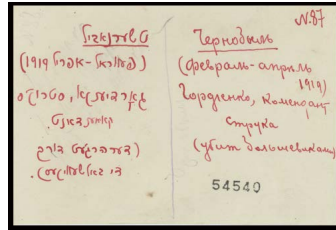 טשערנאביל
(פעווראל-אפריל 1919)
קאמענדאנט.
(דערהרגעט דורך
די באלשעוויקעס).
N. 87
Чернобыль
(февраль-апрель
1919)
Гордиенко, комендант
струка
(убит большевиками)
54540